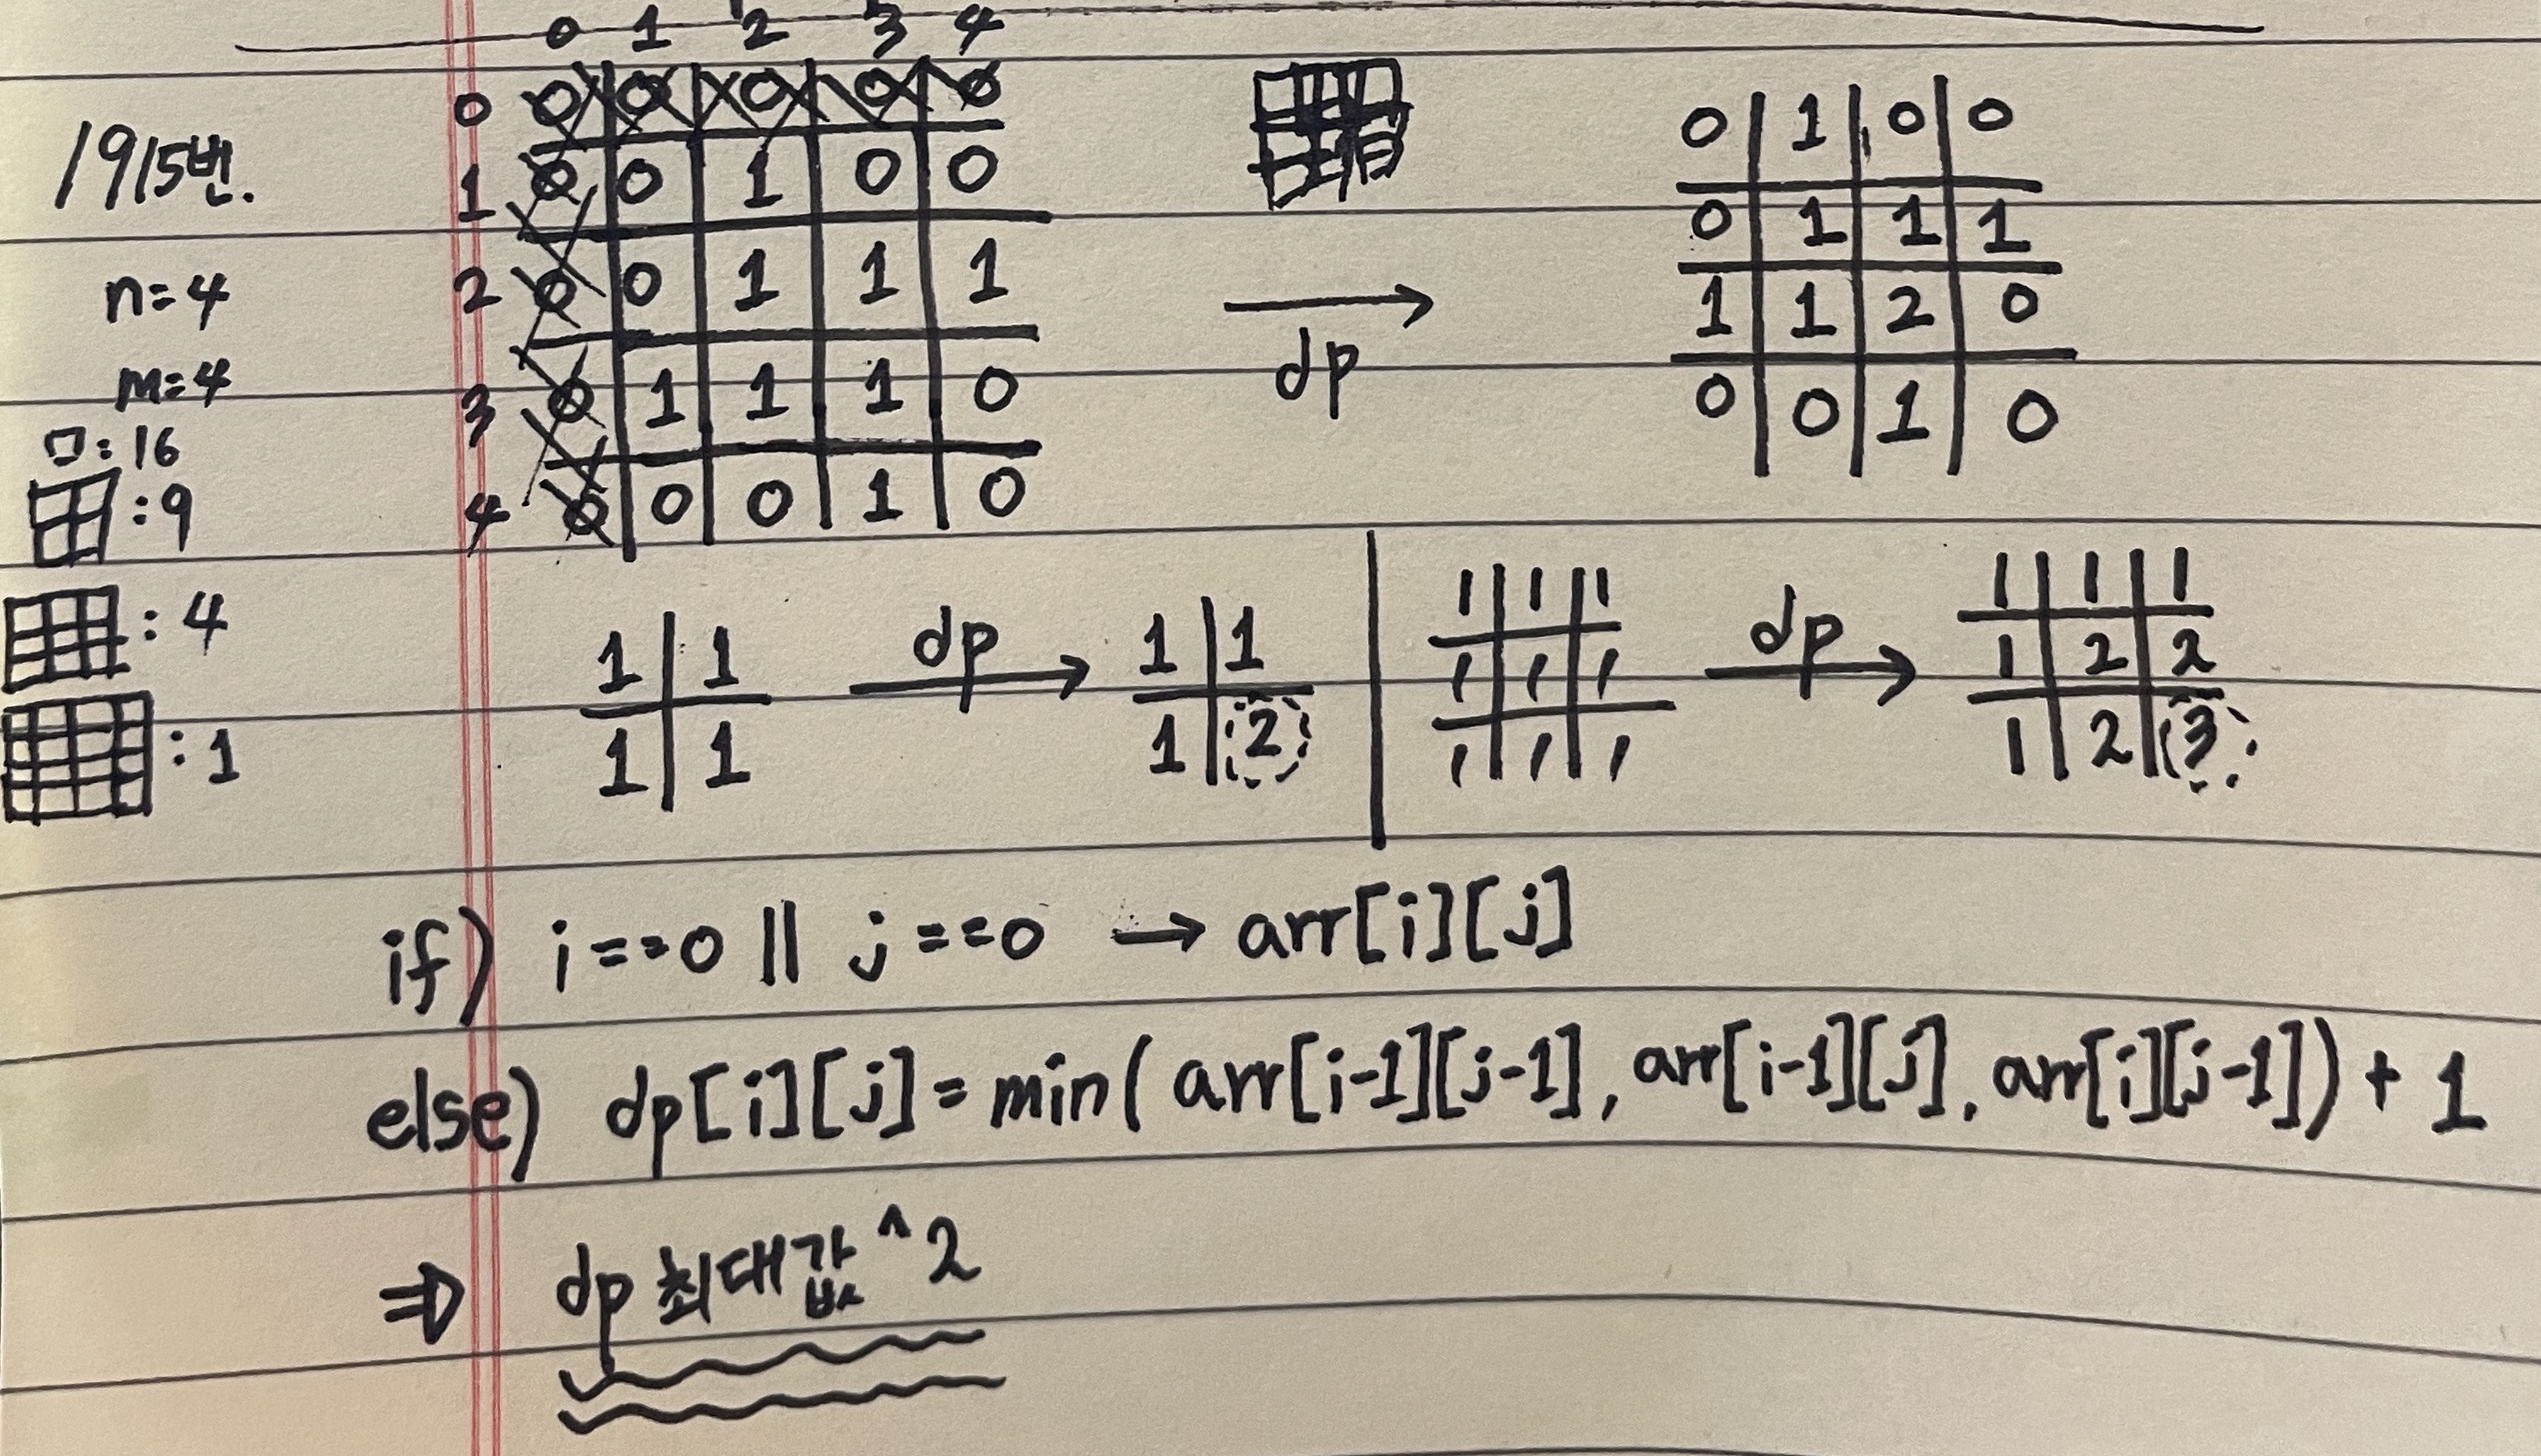 0 1 2 3 4
0 0 0 0 0 0
1915번.
1 0 0 1 0 0
n=4
2 0 0 1 1 1
m=4
3 0 1 1 1 0
4 0 0 0 1 0
□:16
:9
:4
:1
dp
0 1 0 0
0 1 1 1
1 1 2 0
0 0 1 0
1 1
1 1
dp
1 1
1 2
1 1 1
1 1 1
1 1 1
dp
1 1 1
1 2 2
1 2 3
if) i==0 || j==0 → arr[i][j]
else) dp[i][j]=min( arr[i-1][j-1], arr[i-1][j], arr[i][j-1]) + 1
⇒ dp 최대값^2